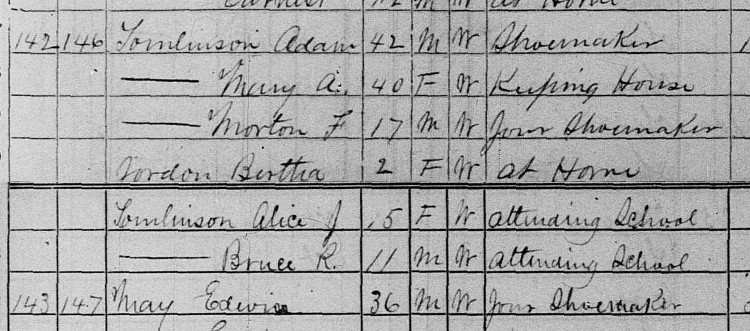 at Home
142 146 Tomlinson Adam 42 M W Shoemaker
—— Mary A. 40 F W Keeping House
—— Morton F 17 M W Jour Shoemaker
Bertha 2 F W at Home
Tomlinson Alice J 15 F W attending School
—— Bruce R. 11 M W attending School
143 147 May Edwin 36 M W Jour Shoemaker